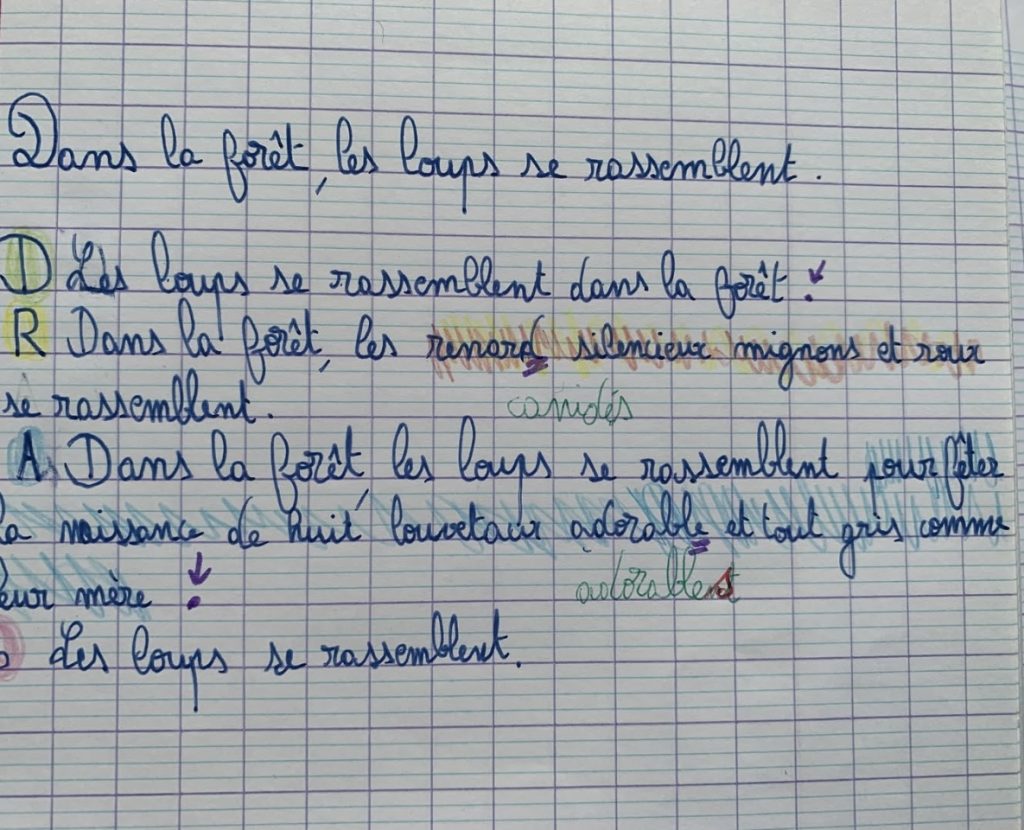 Dans la forêt, les loups se rassemblent.
D Les loups se rassemblent dans la forêt.
R Dans la forêt, les renard silencieux mignons et roux
se rassemblent.
canidés
A Dans la forêt, les loups se rassemblent pour fêter
la naissance de huit louvetaux adorable et tout gris comme
leur mère .
adorables
Les loups se rassemblent.